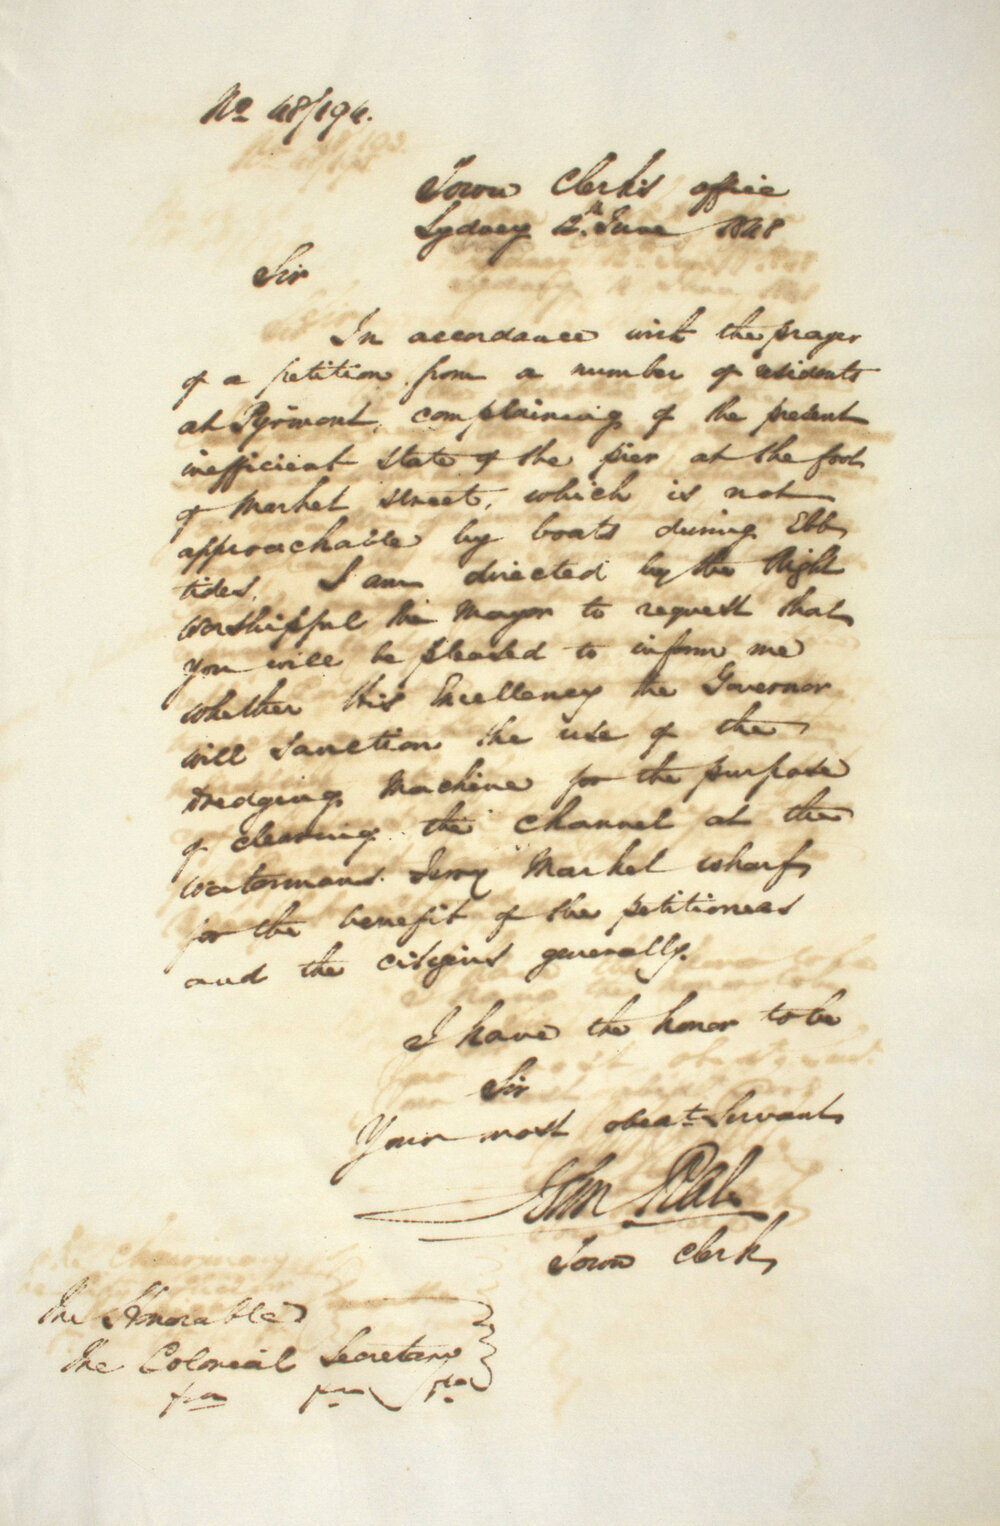 No 48/194.
Town Clerk's office
Sydney 12th June 1848
Sir
In accordance with the prayer
of a petition from a number of residents
at Pyrmont, complaining of the present
inefficient state of the pier at the foot
of Market Street, which is not
approachable by boats during Ebb
tides. I am directed by the Right
Worshipful the Mayor to request that
you will be pleased to inform me
whether His Excellency the Governor
will sanction the use of the
Dredging Machine for the purpose
of clearing the channel at the
Watermans Ferry Market wharf
for the benefit of the petitioners
and the citizens generally.
I have the honor to be
Sir
Your most obedt Servant
John
Town Clerk
The Honorable
The Colonial Secretary